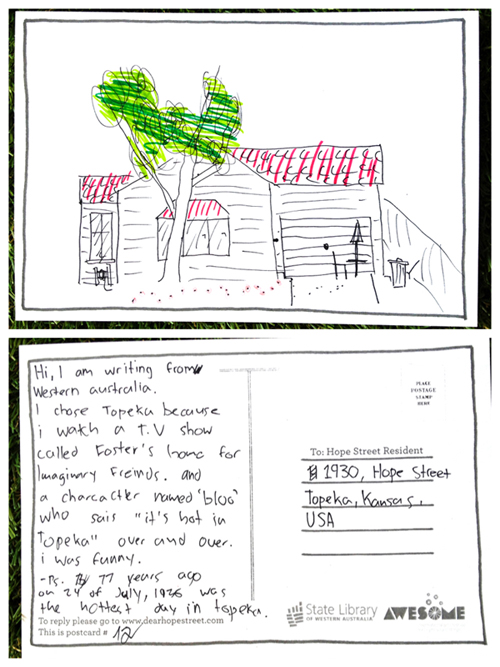 Hi, I am writing from
Western australia.
I chose Topeka because
i watch a T.V show
called Foster's home for
Imaginary Freinds. and
a charcactler named 'bloo'
who sais "it's hot in
Topeka" over and over.
i was funny.
-Ps. 77 years ago
on 24 of July, 1936 was
the hottest day in topeka.
To reply please go to www.dearhopestreet.com
This is postcard # 12
PLACE
POSTAGE
STAMP
HERE
To: Hope Street Resident
1930, Hope Street
Topeka, Kansas,
USA
State Library
OF WESTERN AUSTRALIA
AWESOME